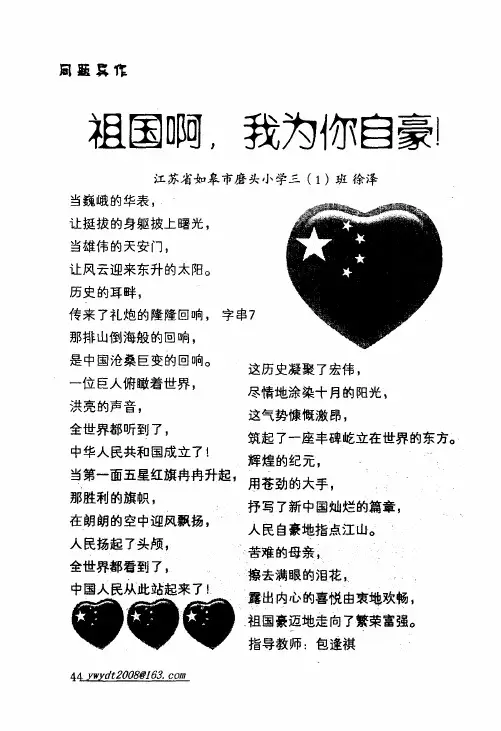 同题异作
祖国啊，我为你自豪!
江苏省如皋市磨头小学三（1）班 徐泽
当巍峨的华表，
让挺拔的身躯披上曙光，
当雄伟的天安门，
让风云迎来东升的太阳。
历史的耳畔，
传来了礼炮的隆隆回响， 字串7
那排山倒海般的回响，
是中国沧桑巨变的回响。
一位巨人俯瞰着世界，
洪亮的声音，
全世界都听到了，
中华人民共和国成立了！
当第一面五星红旗冉冉升起，
那胜利的旗帜，
在朗朗的空中迎风飘扬，
人民扬起了头颅，
全世界都看到了，
中国人民从此站起来了！
这历史凝聚了宏伟，
尽情地涂染十月的阳光，
这气势慷慨激昂，
筑起了一座丰碑屹立在世界的东方。
辉煌的纪元，
用苍劲的大手，
抒写了新中国灿烂的篇章，
人民自豪地指点江山。
苦难的母亲，
擦去满眼的泪花，
露出内心的喜悦由衷地欢畅，
祖国豪迈地走向了繁荣富强。
指导教师：包逢祺
44 ywydt2008@163.com